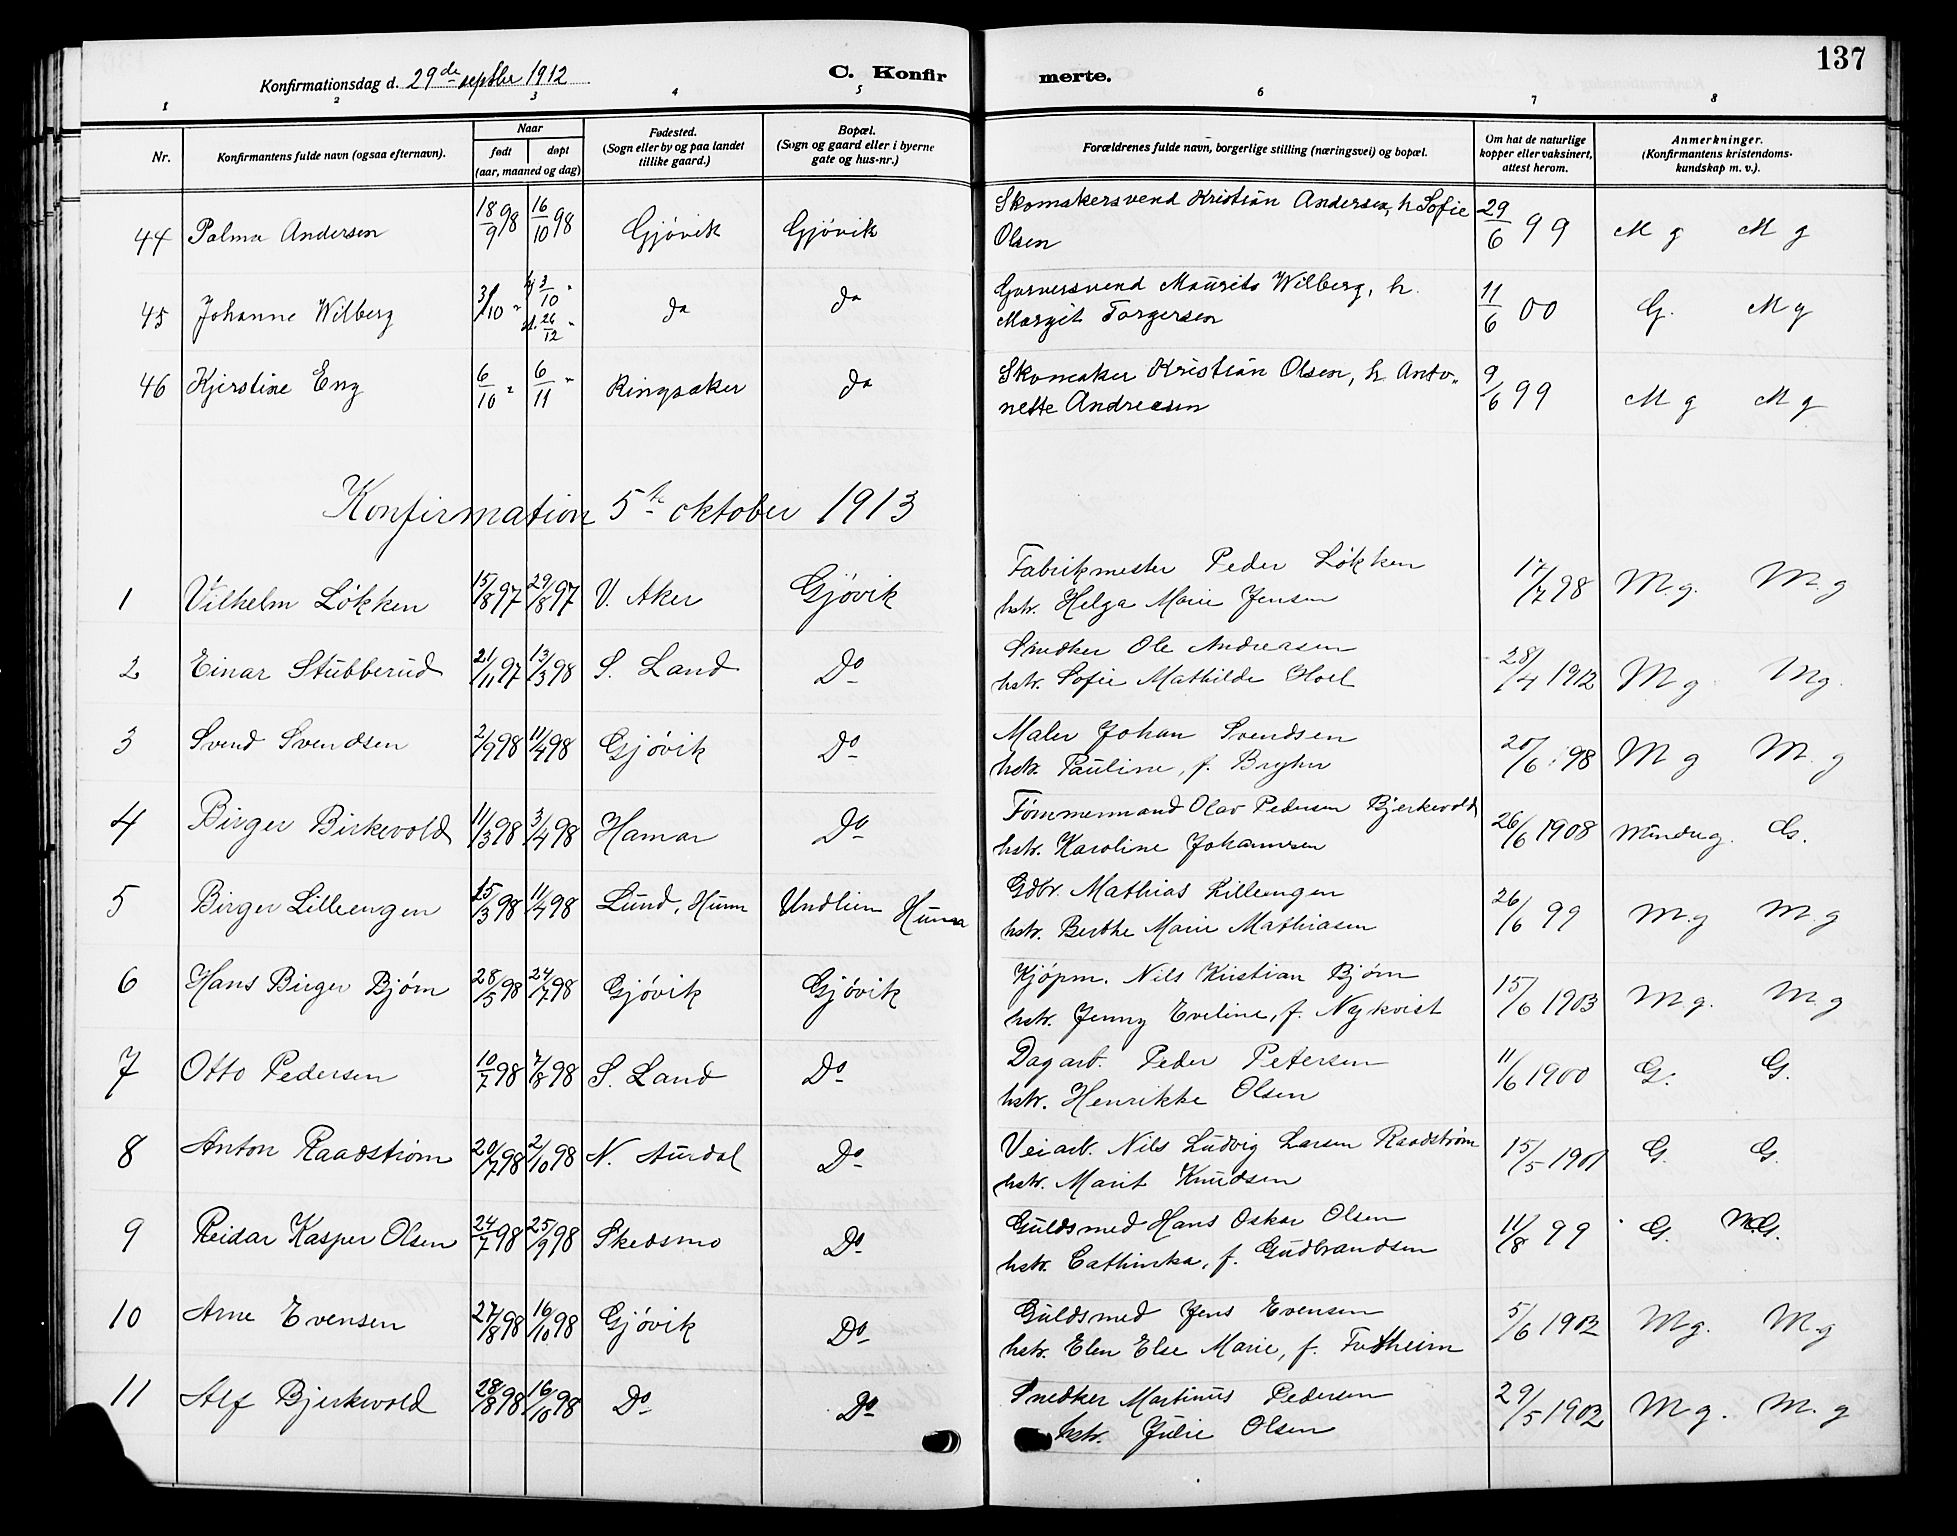 137
Konfirmationsdag d. 29de septbr 1912
C. Konfir merte.
1 2 3 4 5 6 7 8
Nr.
Konfirmantens fulde navn (ogsaa efternavn).
Naar
født døpt
(aar, maaned og dag)
Fødested.
(Sogn eller by og paa landet
tillike gaard.)
Bopæl.
(Sogn og gaard eller i byerne
gate og hus-nr.)
Forældrenes fulde navn, borgerlige stilling (næringsvei) og bopæl.
Om hat de naturlige
kopper eller vaksinert,
attest herom.
Anmerkninger.
(Konfirmantens kristendoms-
kundskap m. v.).
44 Palma Andersen 18/9 98 16/10 98 Gjövik Gjövik Skomakersvend Kristian Andersen, h Sofie
Olsen 29/6 99 M g M g
45 Johanne Wilberg 3/10 " hj 3/10 " st. 26/12 " do do Garversvend Maurits Wilberg, h.
Margit Torgersen 11/6 00 G. M g
46 Kjerstine Eng 6/10 " 6/11 " Ringsaker do Skomaker Kristian Olsen, h Anto-
nette Andreasen 9/6 99 M g M g
Konfirmation 5te oktober 1913
1 Vilhelm Lökken 15/8 97 29/8 97 V. Aker Gjövik Fabrikmester Peder Lökken
hstr. Helga Marie Jensen 17/7 98 M. g. M. g
2 Einar Stubberud 21/11 97 13/3 98 S. Land Do Snedker Ole Andreasen
hstr. Sofie Mathilde Hoel 28/4 1912 M g M g.
3 Svend Svendsen 2/9 98 11/4 98 Gjövik Do Maler Johan Svendsen
hstr. Pauline, f. Bryhn 20/6 98 M g M. g
4 Birger Birkevold 11/3 98 3/4 98 Hamar Do Tömmermand Olav Pedersen Bjerkevold
hstr. Karoline Johannesen 26/6 1908 Mindre g. G.
5 Birger Lilleengen 15/3 98 11/4 98 Lund, Hunn Undlien Hunn Gdbr. Mathias Lilleengen
hstr. Berthe Marie Mathiasen 26/6 99 M. g M. g
6 Hans Birger Björn 28/5 98 24/7 98 Gjövik Gjövik Kjöpm. Nils Kristian Björn
hstr. Jenny Eveline, f. Nykvist 15/6 1903 M g. M. g
7 Otto Pedersen 10/7 98 7/8 98 S. Land Do Dagarb. Peder Petersen
hstr. Henrikke Olsen 11/6 1900 G. G.
8 Anton Raadström 20/7 98 2/10 98 N. Aurdal Do Veiarb. Nils Ludvig Larsen Raadström
hstr. Marit Knudsen 15/5 1901 G. G.
9 Reidar Kasper Olsen 24/7 98 25/9 98 Skedsmo Do Guldsmed Hans Oskar Olsen
hstr. Cathinka, f. Gudbrandsen 11/8 99 G. G.
10 Arne Evensen 27/8 98 16/10 98 Gjövik Do Guldsmed Jens Evensen
hstr. Elen Else Marie, f. 5/6 1902 M g. M. g
11 Alf Bjerkevold 28/8 98 16/10 98 Do Do Snedker Martinus Pedersen
hstr. Julie Olsen 29/5 1902 M g. M. g